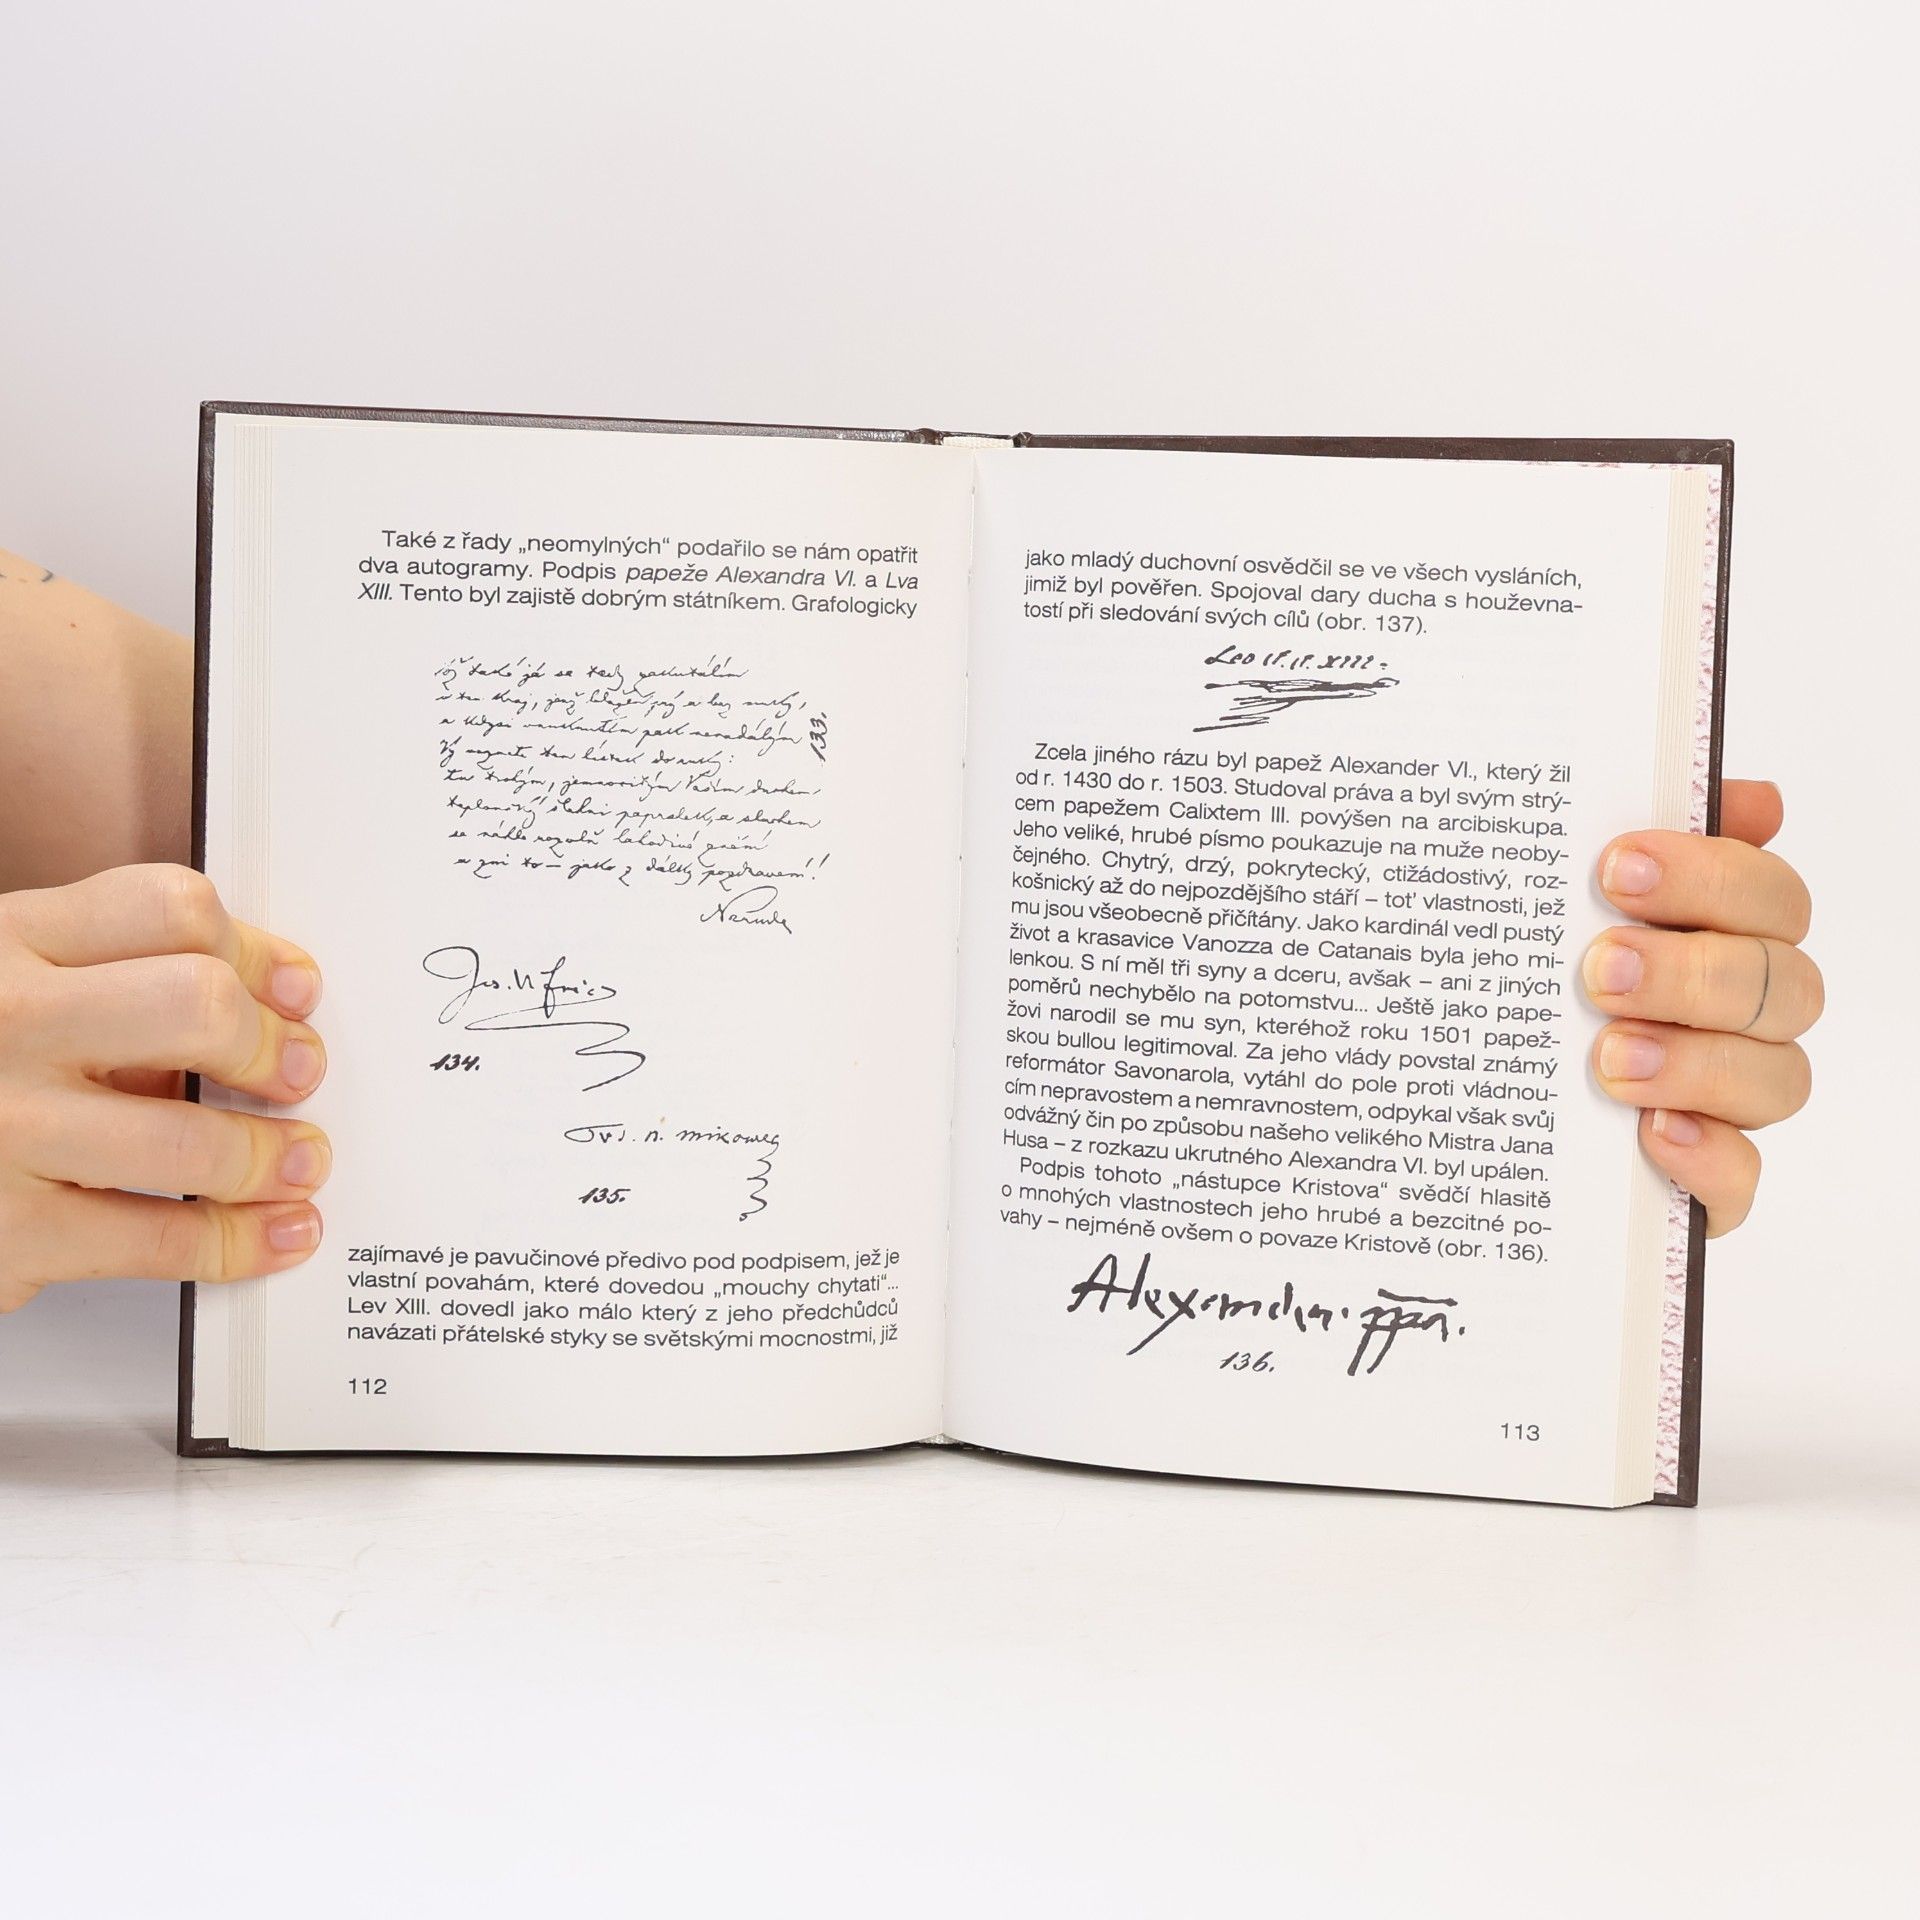 Také z řady „neomylných“ podařilo se nám opatřit
dva autogramy. Podpis papeže Alexandra VI. a Lva
XIII. Tento byl zajistě dobrým státníkem. Grafologicky
také já se tedy
a
133.
Vy vezmete ten lístek do ruky:
a
a zní to – jako z dálky pozdravení!
Neruda
Jos. V. Frič
134.
135.
zajímavé je pavučinové předivo pod podpisem, jež je
vlastní povahám, které dovedou „mouchy chytati“...
Lev XIII. dovedl jako málo který z jeho předchůdců
navázati přátelské styky se světskými mocnostmi, již
112
jako mladý duchovní osvědčil se ve všech vysláních,
jimiž byl pověřen. Spojoval dary ducha s houževna-
tostí při sledování svých cílů (obr. 137).
Leo P. P. XIII.
Zcela jiného rázu byl papež Alexander VI., který žil
od r. 1430 do r. 1503. Studoval práva a byl svým strý-
cem papežem Calixtem III. povýšen na arcibiskupa.
Jeho veliké, hrubé písmo poukazuje na muže neoby-
čejného. Chytrý, drzý, pokrytecký, ctižádostivý, roz-
košnický až do nejpozdějšího stáří – toť vlastnosti, jež
mu jsou všeobecně přičítány. Jako kardinál vedl pustý
život a krasavice Vanozza de Catanais byla jeho mi-
lenkou. S ní měl tři syny a dceru, avšak – ani z jiných
poměrů nechybělo na potomstvu... Ještě jako pape-
žovi narodil se mu syn, kteréhož roku 1501 papež-
skou bullou legitimoval. Za jeho vlády povstal známý
reformátor Savonarola, vytáhl do pole proti vládnou-
cím nepravostem a nemravnostem, odpykal však svůj
odvážný čin po způsobu našeho velikého Mistra Jana
Husa – z rozkazu ukrutného Alexandra VI. byl upálen.
Podpis tohoto „nástupce Kristova“ svědčí hlasitě
o mnohých vlastnostech jeho hrubé a bezcitné po-
vahy – nejméně ovšem o povaze Kristově (obr. 136).
136.
113